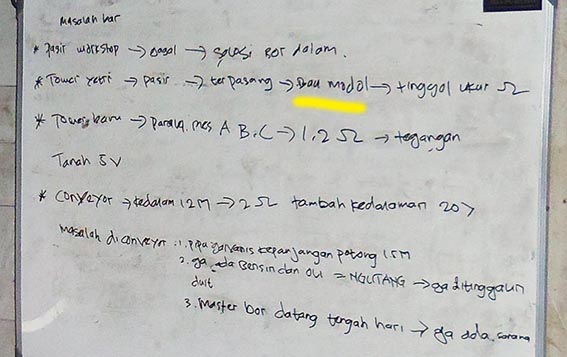 Masalah bor
* Pasir workshop → gagal → solusi Bor dalam.
* Tower yetri → pasir → terpasang → modol → tinggal ukur Ω
* Tower baru → paralel mes A B, C → 1.2 Ω → tegangan
Tanah 5 V
* Conveyor → kedalam 12M → 2 Ω tambah kedalaman 20>
Masalah diconveyor : 1. Pipa galvanis kepanjangan potong 1.5M
2. ga ada Bensin dan oli = NGUTANG → ga ditinggalin
duit
3. Master bor datang tengah hari → ga ada